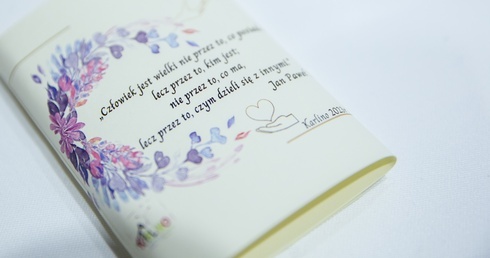 „Człowiek jest wielki nie przez to, co
lecz przez to, kim jest;
nie przez to, co ma,
lecz przez to, czym dzieli się z innymi."
Jan Paweł
Karlino